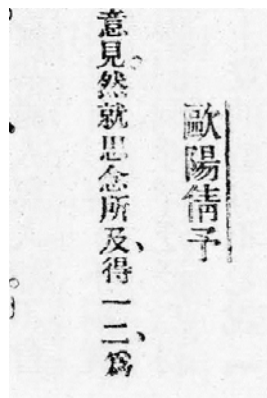 歐陽倩予
意見然。就思念所及、得一二、爲